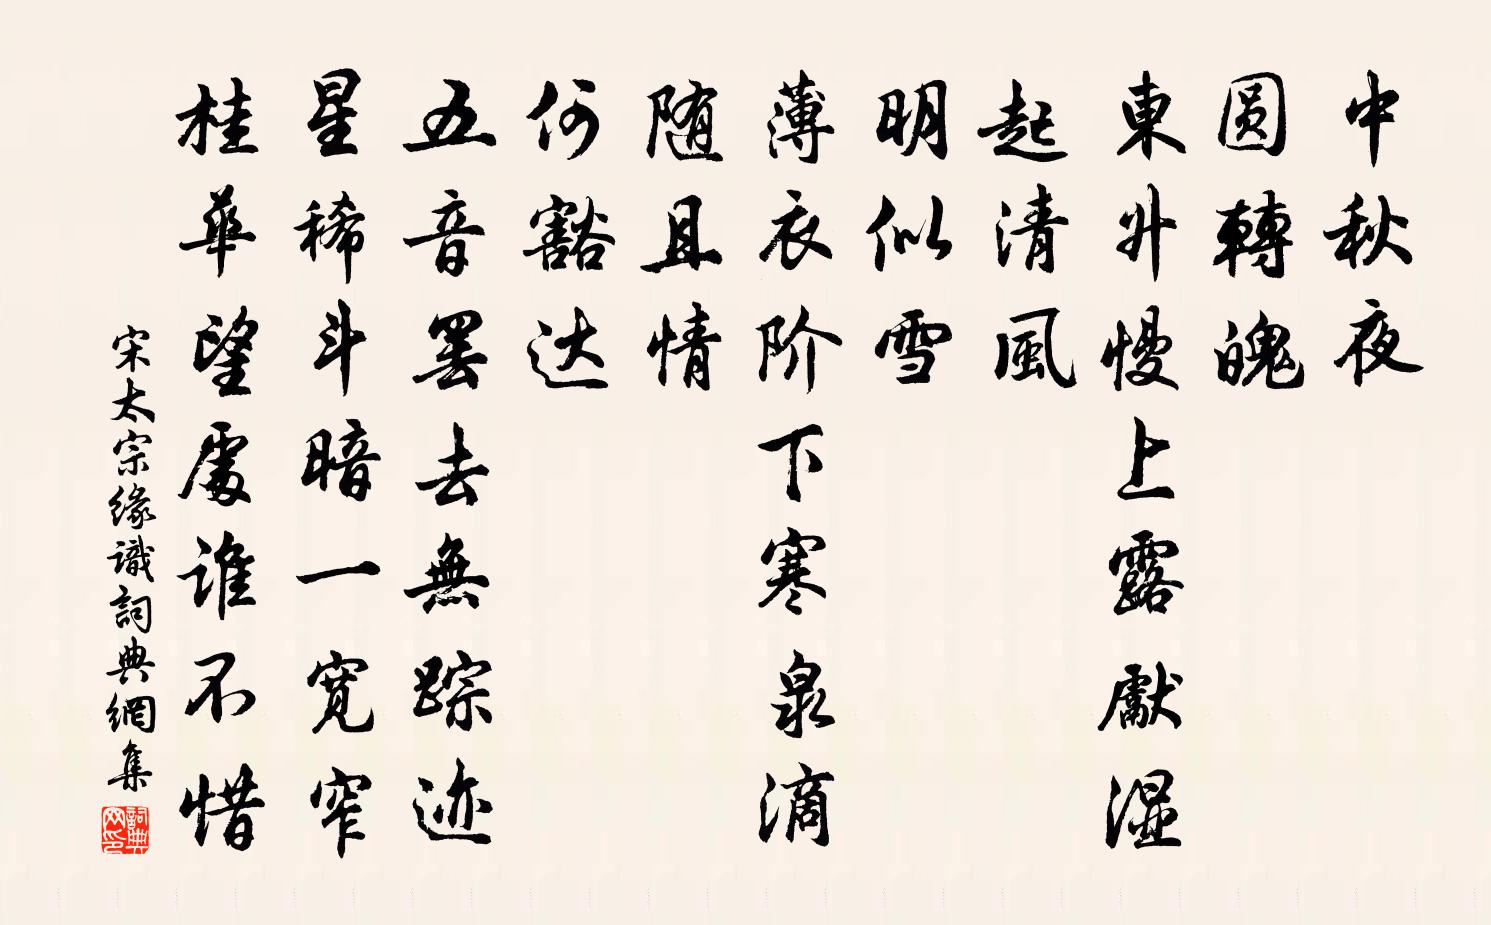 中秋夜
圆轉魄
東升慢上露獻湿
起清風
明似雪
薄衣阶下寒泉滴
随且情
何豁达
五音罢去無踪迹
星稀斗暗一寬窄
桂華望處誰不惜
宋太宗緣識詞典網集
詞典网印